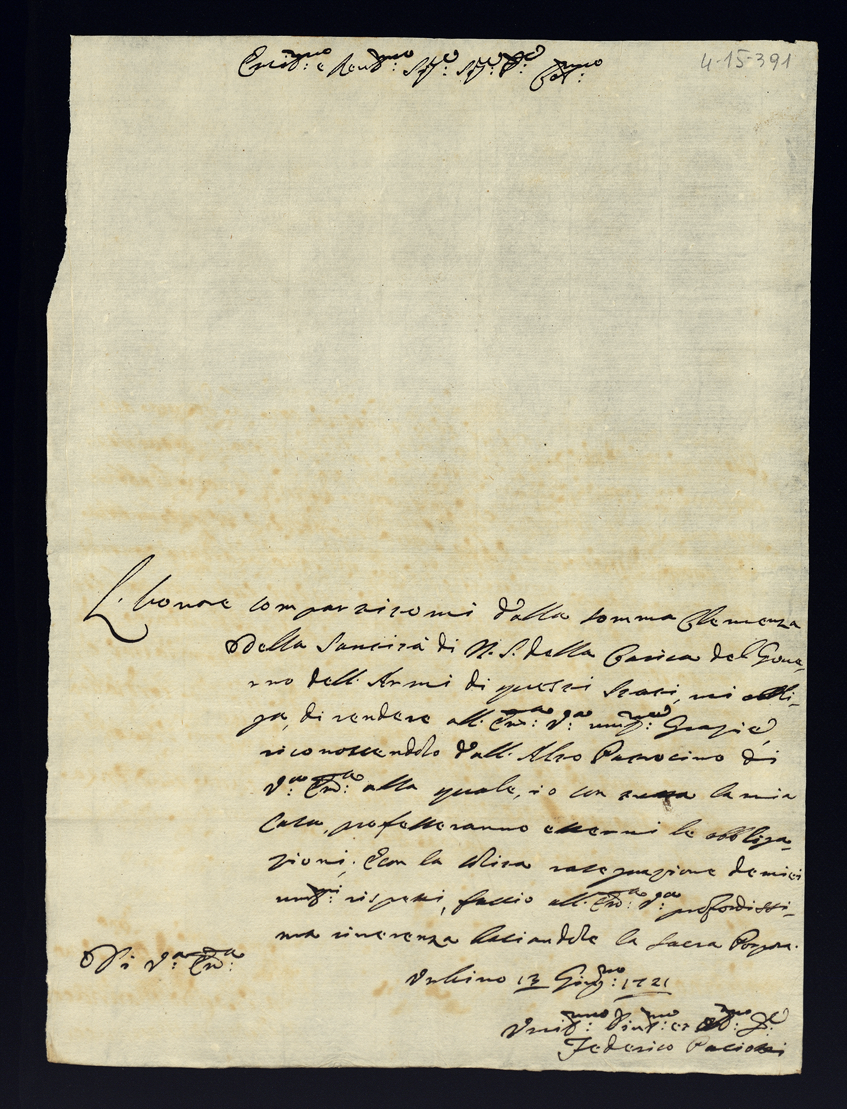 4-15-391
Em:mo e Reu:mo Sig:e Sig:e P:e Col:mo
L'honore compartitomi dalla somma Clemenza
della Santità di N. S. della Carica del Gouer-
no dell'Armi di questi Stati, mi obbli-
ga, di rendere all'Em:a V:a umil:me Grazie,
riconoscendolo dall'Alto Patrocinio di
V:a Em:a alla quale, io con tutta la mia
Casa, professeranno eterni le obbliga-
zioni; E con la solita rassegnazione de miei
umil:mi rispetti, faccio all'Em:a V:a profondissi-
ma riuerenza baciandole la Sacra Porpora.
Di V:a Em:a
Vrbino 13 Giug:no 1721
Vmil:mo Diuot:mo et Obb:mo Se:
Federico